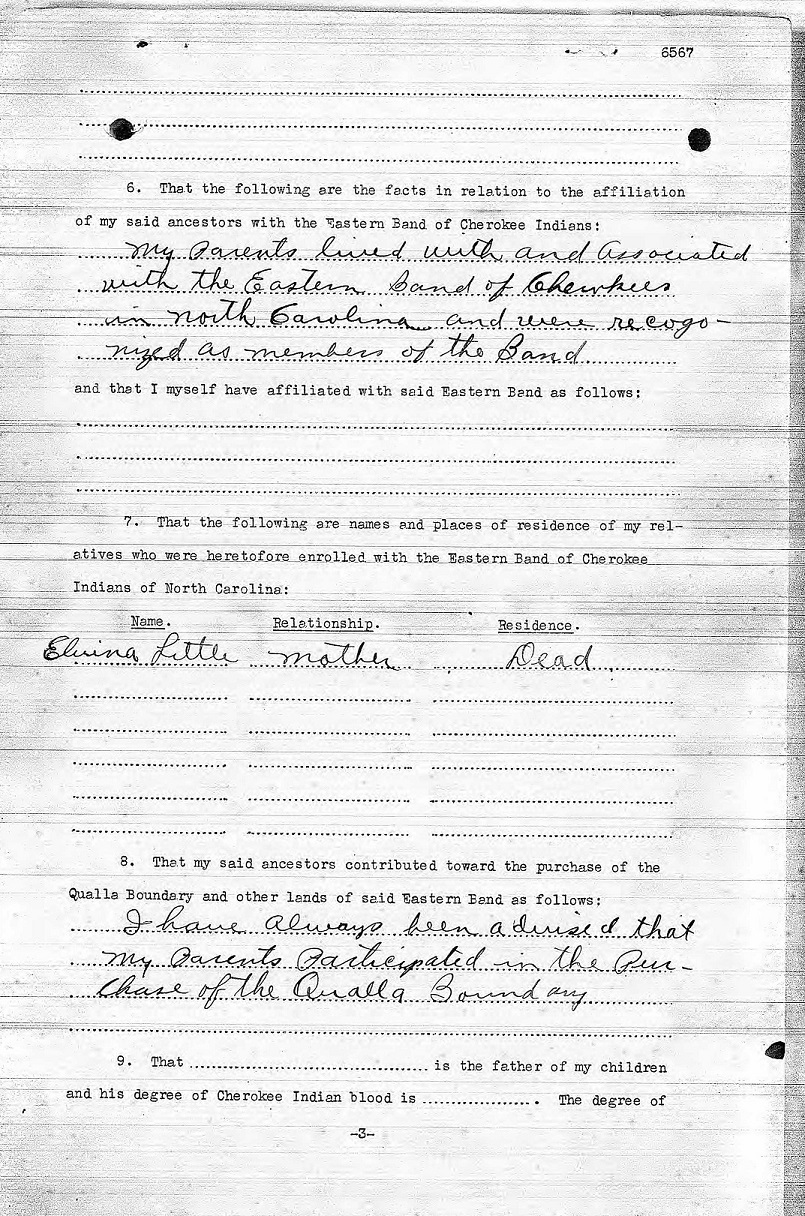 6567
6. That the following are the facts in relation to the affiliation
of my said ancestors with the Eastern Band of Cherokee Indians:
My Parents lived with and associated
with the Eastern Band of Cherokees
in North Carolina and were recogo-
nized as members of the Band
and that I myself have affiliated with said Eastern Band as follows:
7. That the following are names and places of residence of my rel-
atives who were heretofore enrolled with the Eastern Band of Cherokee
Indians of North Carolina:
Name. Relationship. Residence.
Elvina Little mother Dead
8. That my said ancestors contributed toward the purchase of the
Qualla Boundary and other lands of said Eastern Band as follows:
I have always been advised that
my Parents Participated in the Pur-
chase of the Qualla Boundary
9. That .......... is the father of my children
and his degree of Cherokee Indian blood is .......... . The degree of
-3-